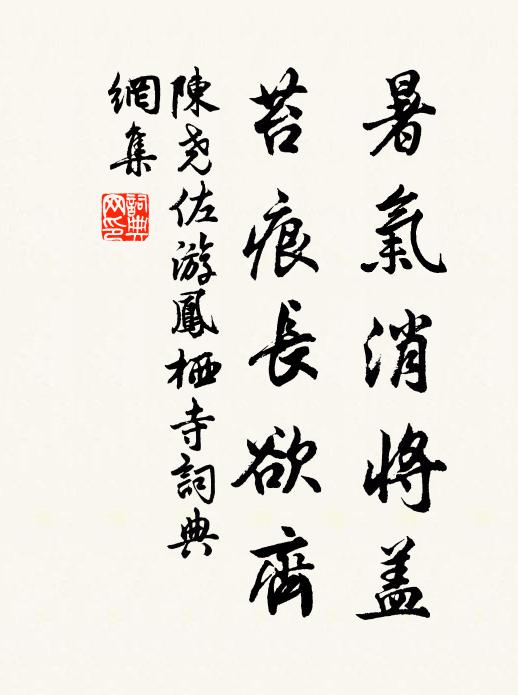 暑氣消將盖
苔痕長欲齊
陳尧佐游鳳栖寺詞典
網集
詞典
网印